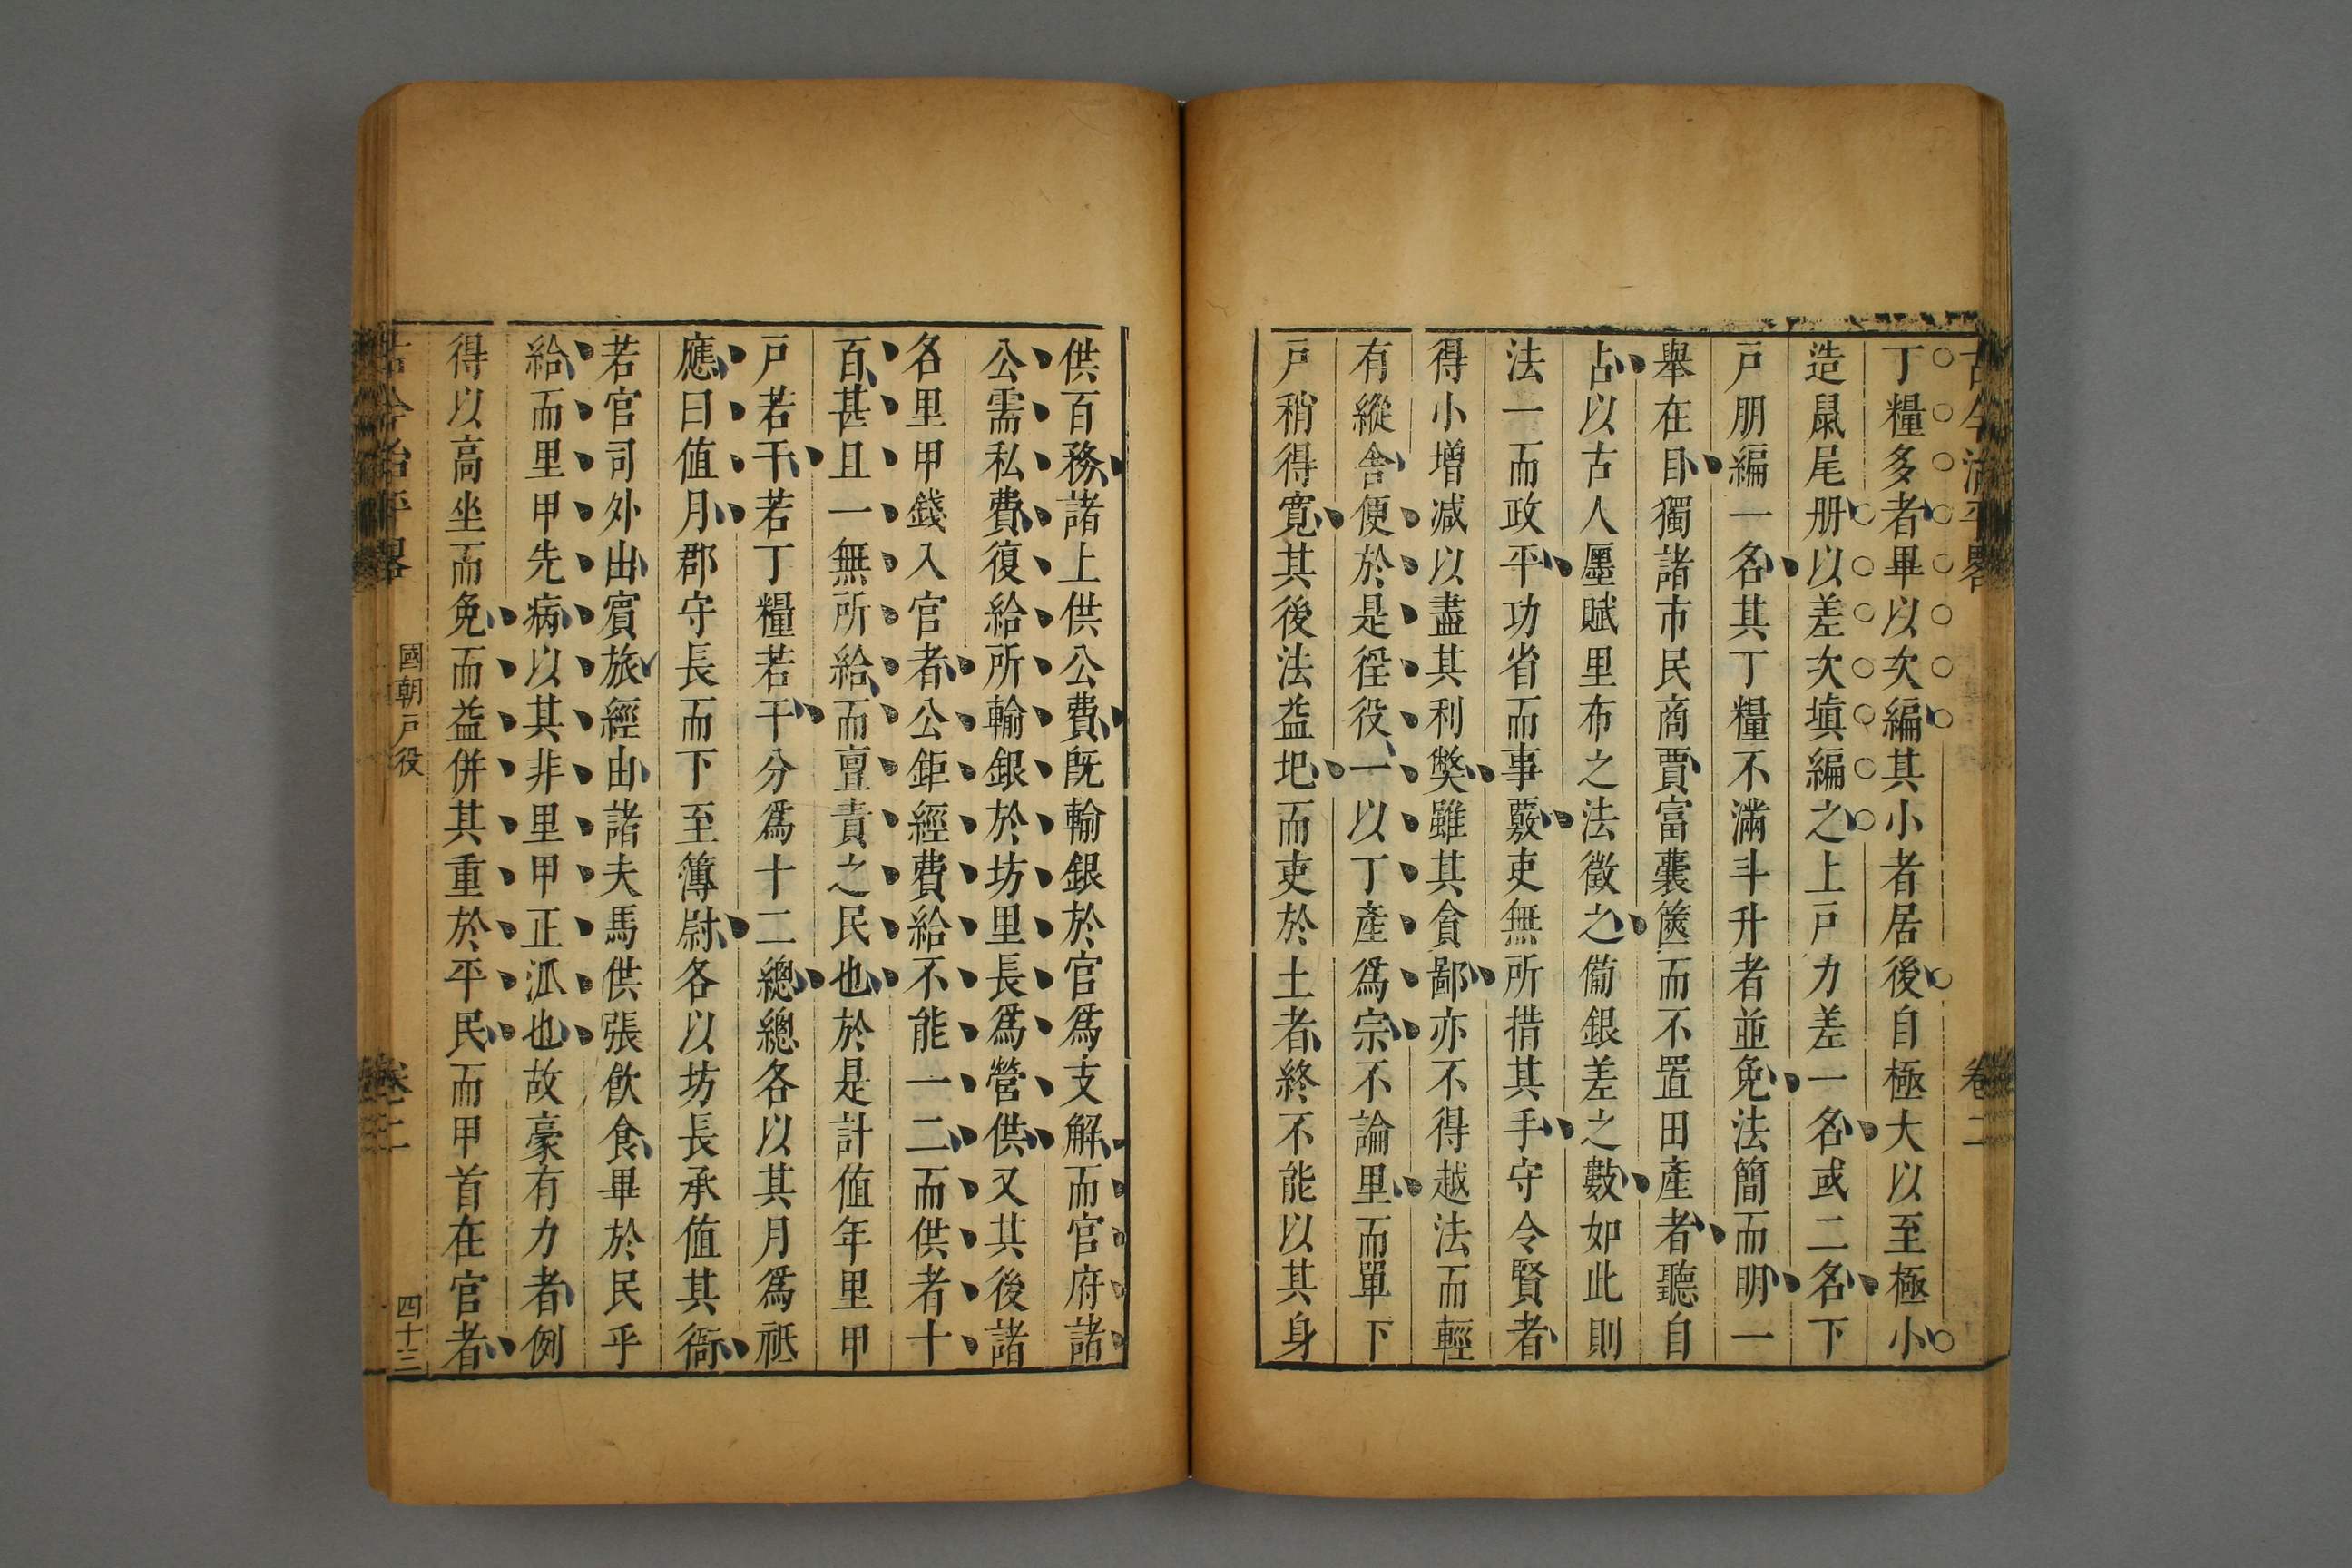 古今治平畧
卷二
丁糧多者畢以次編其小者居後自極大以至極小
造鼠尾册以差次填編之上戸力差一名或二名下
戸朋編一名其丁糧不滿斗升者並免法簡而明一
舉在目獨諸市民商賈富囊篋而不置田產者聽自
占以古人廛賦里布之法徵之備銀差之數如此則
法一而政平功省而事覈吏無所措其手守令賢者
得小增减以盡其利獘雖其貪鄙亦不得越法而輕
有縱舍便於是徑役一以丁產爲宗不論里而單下
戸稍得寛其後法益圯而吏於土者終不能以其身
供百務諸上供公費旣輸銀於官爲支解而官府諸
公需私費復給所輸銀於坊里長爲營供又其後諸
名里甲錢入官者公鉅經費給不能一二而供者十
百甚且一無所給而亶責之民也於是計值年里甲
戸若干若丁糧若干分爲十二總總各以其月爲祗
應曰值月郡守長而下至簿尉各以坊長承值其衙
若官司外出賓旅經由諸夫馬供張飲食畢於民乎
給而里甲先病以其非里甲正泒也故豪有力者例
得以高坐而免而益併其重於平民而甲首在官者
古今治平畧
國朝戸役
卷二
四十三